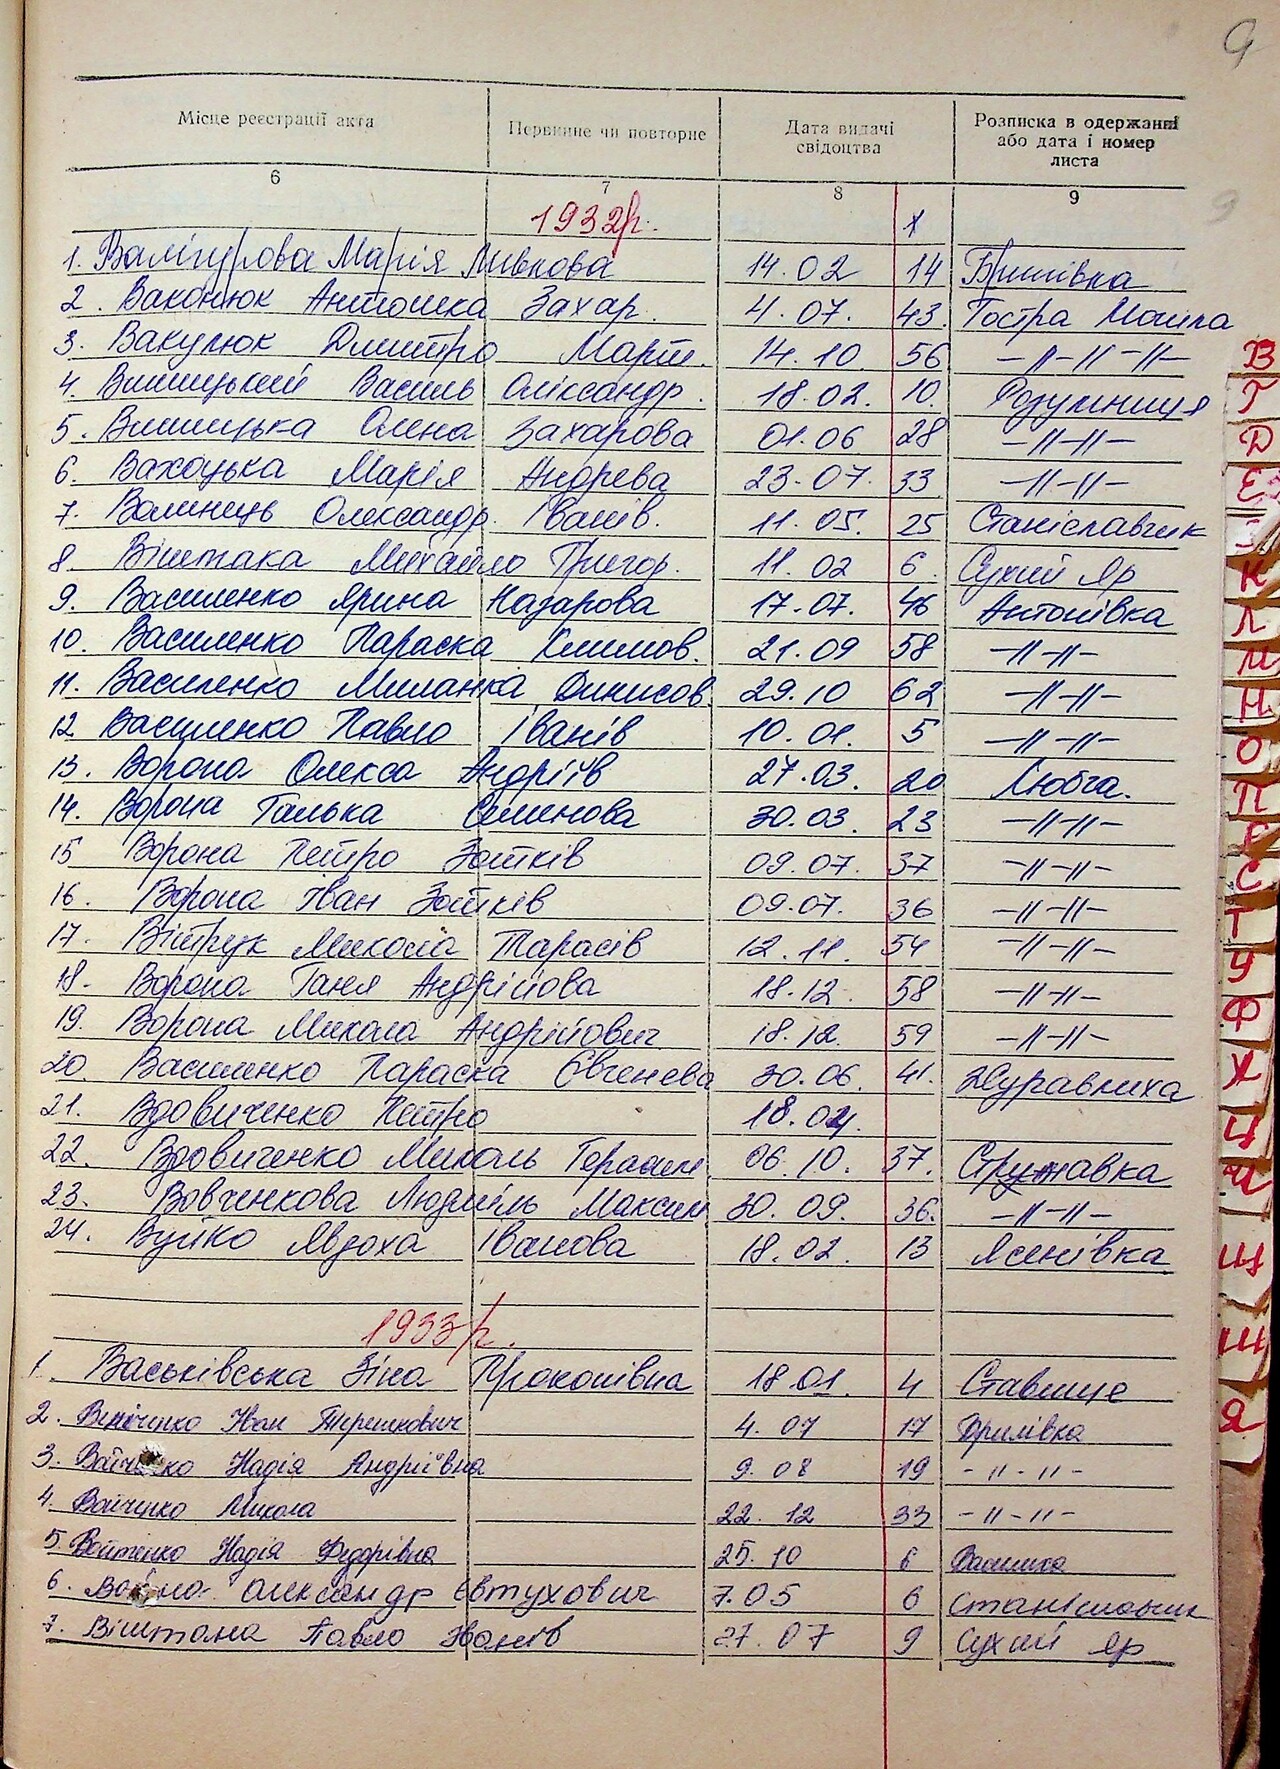 9
Місце реєстрації акта
Первинне чи повторне
Дата видачі свідоцтва
Розписка в одержанні або дата і номер листа
6 7 8 9
9
1932р. х
1. Валігурова Марія Ливкова 14.02 14 Бришівка
2. Ваконюк Антошка Захар. 4.07. 43. Гостра Могила
3. Вакулюк Дмитро Март. 14.10. 56 -//-//-//-
4. Вишицький Василь Олександр. 18.02. 10. Розумниця
5. Вишицька Олена Захарова 01.06 28 -//-//-
6. Вахоцька Марія Андрева 23.07. 33 -//-//-
7. Валинець Олександр. Іванів. 11.05. 25 Станіславчик
8. Віштака Михайло Григор. 11.02 6. Сухий Яр
9. Василенко Ярина Назарова 17.07. 46 Антонівка
10. Василенко Параска Климов. 21.09 58 -//-//-
11. Василенко Миланка Динисов. 29.10 62 -//-//-
12. Василенко Павло Іванів 10.01. 5 -//-//-
13. Ворона Олекса Андріїв 27.03. 20 Любча.
14. Ворона Галька Семенова 30.03. 23 -//-//-
15 Ворона Петро Зотків 09.07. 37 -//-//-
16. Ворона Іван Зотків 09.07. 36 -//-//-
17. Вітрук Микола Тарасів 12.11. 54 -//-//-
18. Ворона Ганя Андрійова 18.12. 58 -//-//-
19. Ворона Микола Андрійович 18.12. 59 -//-//-
20. Василенко Параска Євгенева 30.06. 41. Журавлиха
21. Вдовиченко Петро 18.04.
22. Вдовиченко Миколь Герасим. 06.10. 37. Стрижавка
23. Вовченкова Людміль Максим. 30.09. 36. -//-//-
24. Вуйко Явдоха Іванова 18.02. 13 Ясенівка
1933р.
1. Васьківська Зіна Прокопівна 18.01. 4 Ставище
2. Іван Терешкович 4.07 17 Брилівка
3. Надія Андріївна 9.08 19 -//-//-
4. Войченко Микола 22.12 33 -//-//-
5. Войтенко Надія Федорівна 25.10 6 Василиха
6. Олександр Євтухович 7.05 6 Станіславчик
7. Віштака Павло Іванів 27.07 9 Сухий Яр
В
Г
Д
Е
З
К
Л
М
Н
О
П
Р
С
Т
У
Ф
Х
Ц
Ч
Щ
Ш
Я